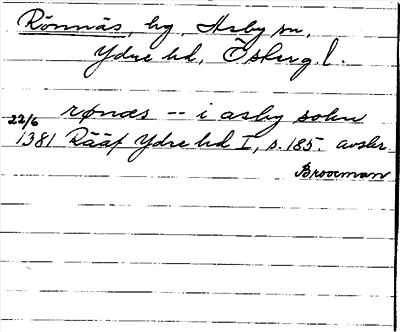 Rönnäs, hg, Asby sn,
Ydre hd, Östergl.
rønæs -- i asby sokn
22/6
1381 Rääf Ydre hd I, s. 185. avskr.
Brooman